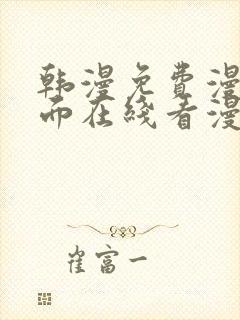 韩漫免费漫
而在线看漫
崔富一